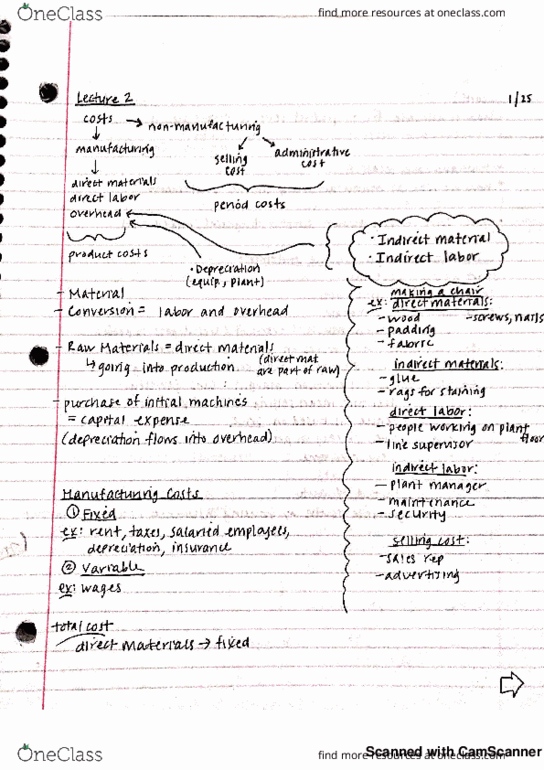 OneClass
find more resources at oneclass.com
Lecture 2
1/25
costs → non-manufacturing
manufacturing
selling cost
administrative cost
direct materials
direct labor
overhead
period costs
product costs
• Depreciation
(equip, plant)
• Indirect material
• Indirect labor
- Material
- Conversion = labor and overhead
- Raw Materials = direct materials
↳ going into production
(direct mat
are part of raw)
- purchase of initial machines
= capital expense
(depreciation flows into overhead)
Manufacturing Costs
① Fixed
ex: rent, taxes, salaried employees,
depreciation, insurance
② Variable
ex: wages
total cost
direct materials → fixed
making a chair
ex: direct materials:
- wood
- screws, nails
- padding
- fabric
indirect materials:
- glue
- rags for staining
direct labor:
- people working on plant
floor
- line supervisor
indirect labor:
- plant manager
- maintenance
- security
selling cost:
- sales rep
- advertising
OneClass
find more resources at oneclass.com
Scanned with CamScanner